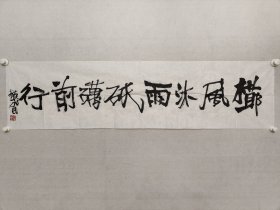 櫛風沐雨砥礪前行